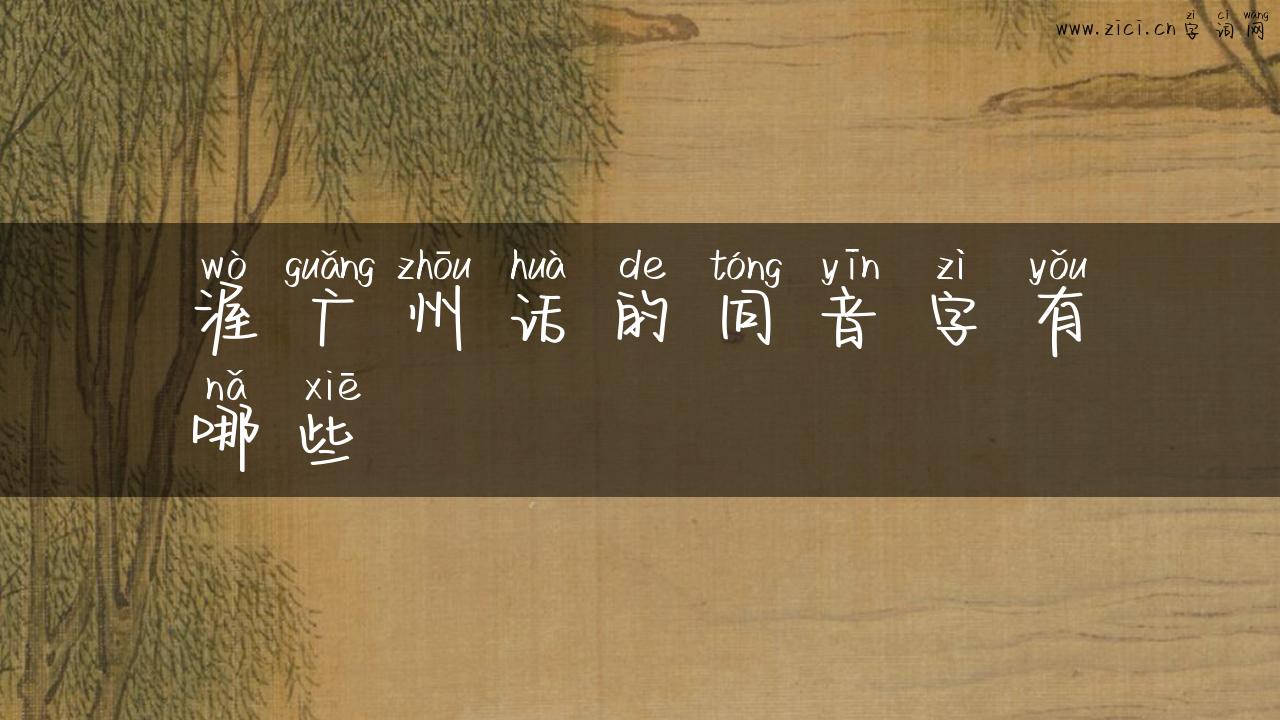 zì cí wǎng
www.zici.cn 字词网
wò guǎng zhōu huà de tóng yīn zì yǒu
渥广州话的同音字有
nǎ xiē
哪些